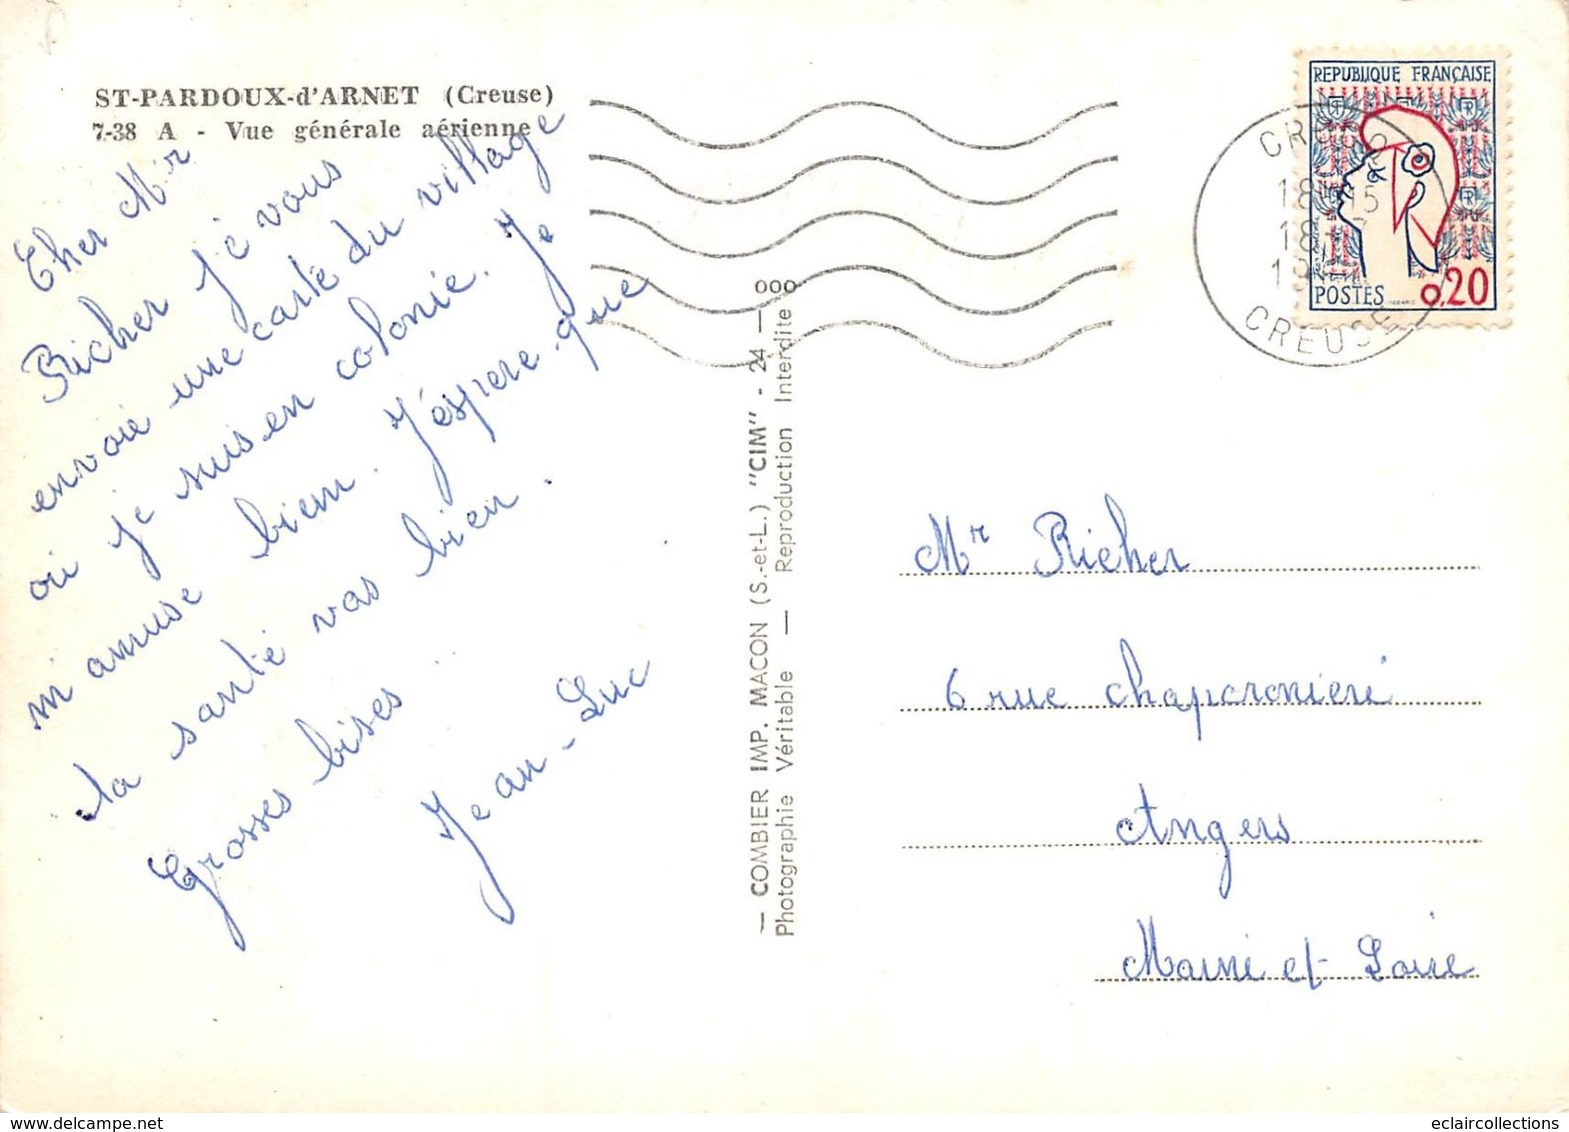 ST-PARDOUX-d'ARNET (Creuse)
7-38 A - Vue générale aérienne
Cher Mr
Richer je vous
envoie une carte du village
où je suis en colonie. Je
m'amuse bien. J'éspere que
ta santé vas bien.
Grosses bises
Jean-Luc
— COMBIER IMP. MACON (S.-et-L.) "CIM" - 24 — ooo
Photographie Véritable — Reproduction Interdite
REPUBLIQUE FRANÇAISE
POSTES 0,20
CROCQ
CREUSE
Mr Richer
6 rue chaperonniere
Angers
Maine et Loire
eclaircollections